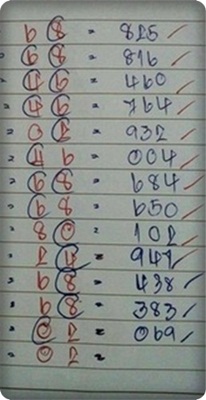 6 8 = 825 ✓
6 8 = 816 ✓
4 6 = 460 ✓
4 6 = 764 ✓
0 2 = 932 ✓
4 6 = 004 ✓
6 8 = 684 ✓
6 8 = 650 ✓
8 0 = 102 ✓
2 2 = 941 ✓
6 8 = 438 ✓
6 8 = 383 ✓
0 2 = 069 ✓
0 2 =